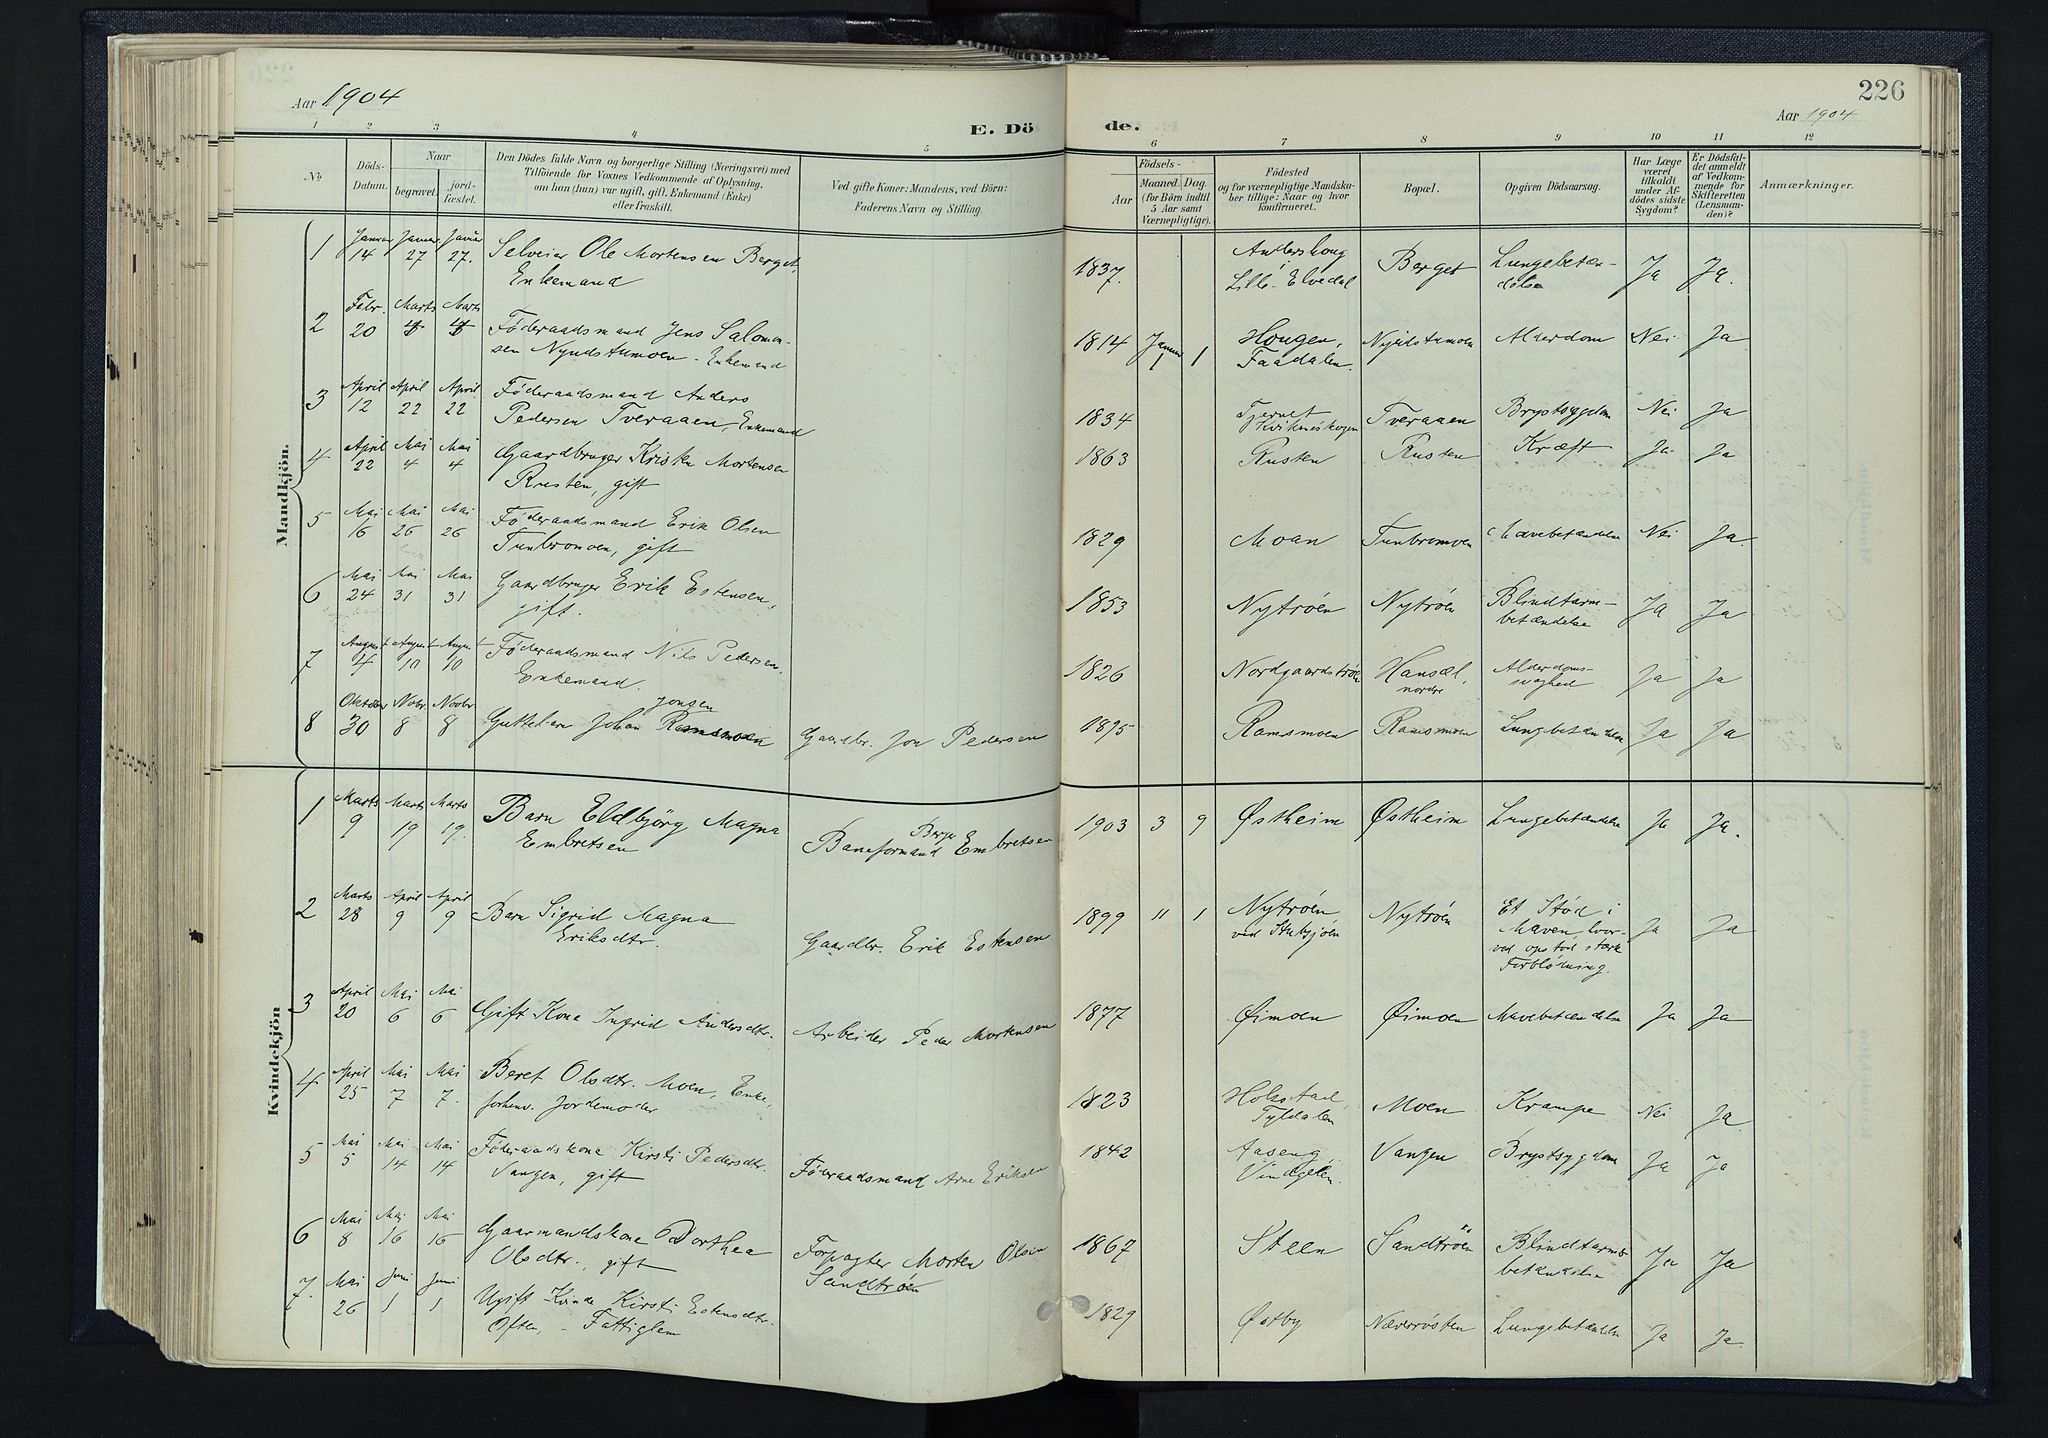 226
Aar 1904
Aar 1904
E. Dö
de.
1 2 3 4 5 6 7 8 9 10 11 12
No
Döds-
Datum.
Naar
begravet.
jord-
fæstet.
Den Dödes fulde Navn og borgerlige Stilling (Næringsvei) med
Tilföiende for Voxnes Vedkommende af Oplysning,
om han (hun) var ugift, gift, Enkemand (Enke)
eller fraskilt.
Ved gifte Koner: Mandens, ved Börn:
Faderens Navn og Stilling.
Födsels-
Aar
Maaned. Dag.
(for Börn indtil
5 Aar samt
Værnepligtige).
Födested
og for værnepligtige Mandska-
ber tillige: Naar og hvor
konfirmeret.
Bopæl.
Opgiven Dödsaarsag.
Har Læge
været
tilkaldt
under Af-
dödes sidste
Sygdom?
Er Dödsfal-
det anmeldt
af Vedkom-
mende for
Skifteretten
(Lensman-
den)?
Anmærkninger.
Mandkjön.
1 Januar 14 Januar 27 Januar 27. Selveier Ole Mortensen Berget, 1837. Berget Lungebetæn- Ja Ja.
Enkemand Lille-Elvedal delse
2 Febr. 20 Marts Marts Föderaadsmand Jens Salomon- 1814 Januar 1 1 Haugen, Alderdom Nei Ja
sen Nyndstumoen - Enkemand Faadalen.
3 April 12 April 22 April 22 Föderaadsmand Anders 1834 Tjernet Tveraaen Brystsygdom Nei Ja
Pedersen Tveraaen, Enkemand
4 April 22 Mai 4 Mai 4 Gaardbruger Kristen Mortensen 1863 Rusten Rusten Kræft Ja Ja
Rusten, gift
5 Mai 16 Mai 26 Mai 26 Föderaadsmand Erik Olsen 1829 Moan Tunbromoen Mavebetændelse Nei Ja.
Tunbromoen, gift
6 Mai 24 Mai 31 Mai 31 Gaardbruger Erik Estensen, 1853 Nytröen Nytröen Blindtarm- Ja Ja
gift. betændelse
7 August 4 August 10 August 10 Föderaadsmand Nils Pedersen, 1826 Nordgaardströen Hansæl, Alderdoms- Ja Ja
Enkemand. nordre svaghed
Jonsen
8 Oktober 30 Novbr. 8 Novbr 8 Guttebarn Johan Ramsmoen Gaardbr. Jon Pedersen 1895 Ramsmoen Ramsmoen Lungebetændelse Ja Ja
Kvindekjön
1 Marts 9 Marts 19 Marts 19. Barn Eldbjörg Magna Baneformand Embretsen 1903 3 9 Østheim Østheim Lungebetændelse Ja Ja.
Embretsen
2 Marts 28 April 9 April 9 Barn Sigrid Magna Gaardbr. Erik Estensen 1899 11 1 Nytröen Nytröen Et Stöd i Ja Ja
Eriksdtr. Maven, hvor-
ved opstod stærk
Forblödning.
3 April 20 Mai 6 Mai 6 Gift Kone Ingrid Andersdtr. Arbeider Peder Mortensen 1877 Øimoen Øimoen Mavebetændelse Ja Ja
4 April 25 Mai 7 Mai 7. Beret Olsdtr. Moen, Enke, 1823 Moen Krampe Nei Ja.
forhenv. Jordemoder Tyldalen
5 Mai 5 Mai 14 Mai 14 Föderaadskone Kirsti Pedersdtr. Föderaadsmand Arne Eriksen 1842 Aaseng Vangen Brystsygdom Ja Ja
Vangen, gift Vingelen.
6 Mai 8 Mai 16 Mai 16 Gaarmandskone Dorthea Forpagter Morten Olsen 1867 Steen Sandtröen Blindtarms Ja Ja
Olsdtr., gift Sandtröen
7. Mai 26 Juni 1 Juni 1 Ugift Kvinde Kirsti Estensdtr. 1829 Østby Næverösten Lungebetændelse Ja Ja.
Often, - Fattiglem